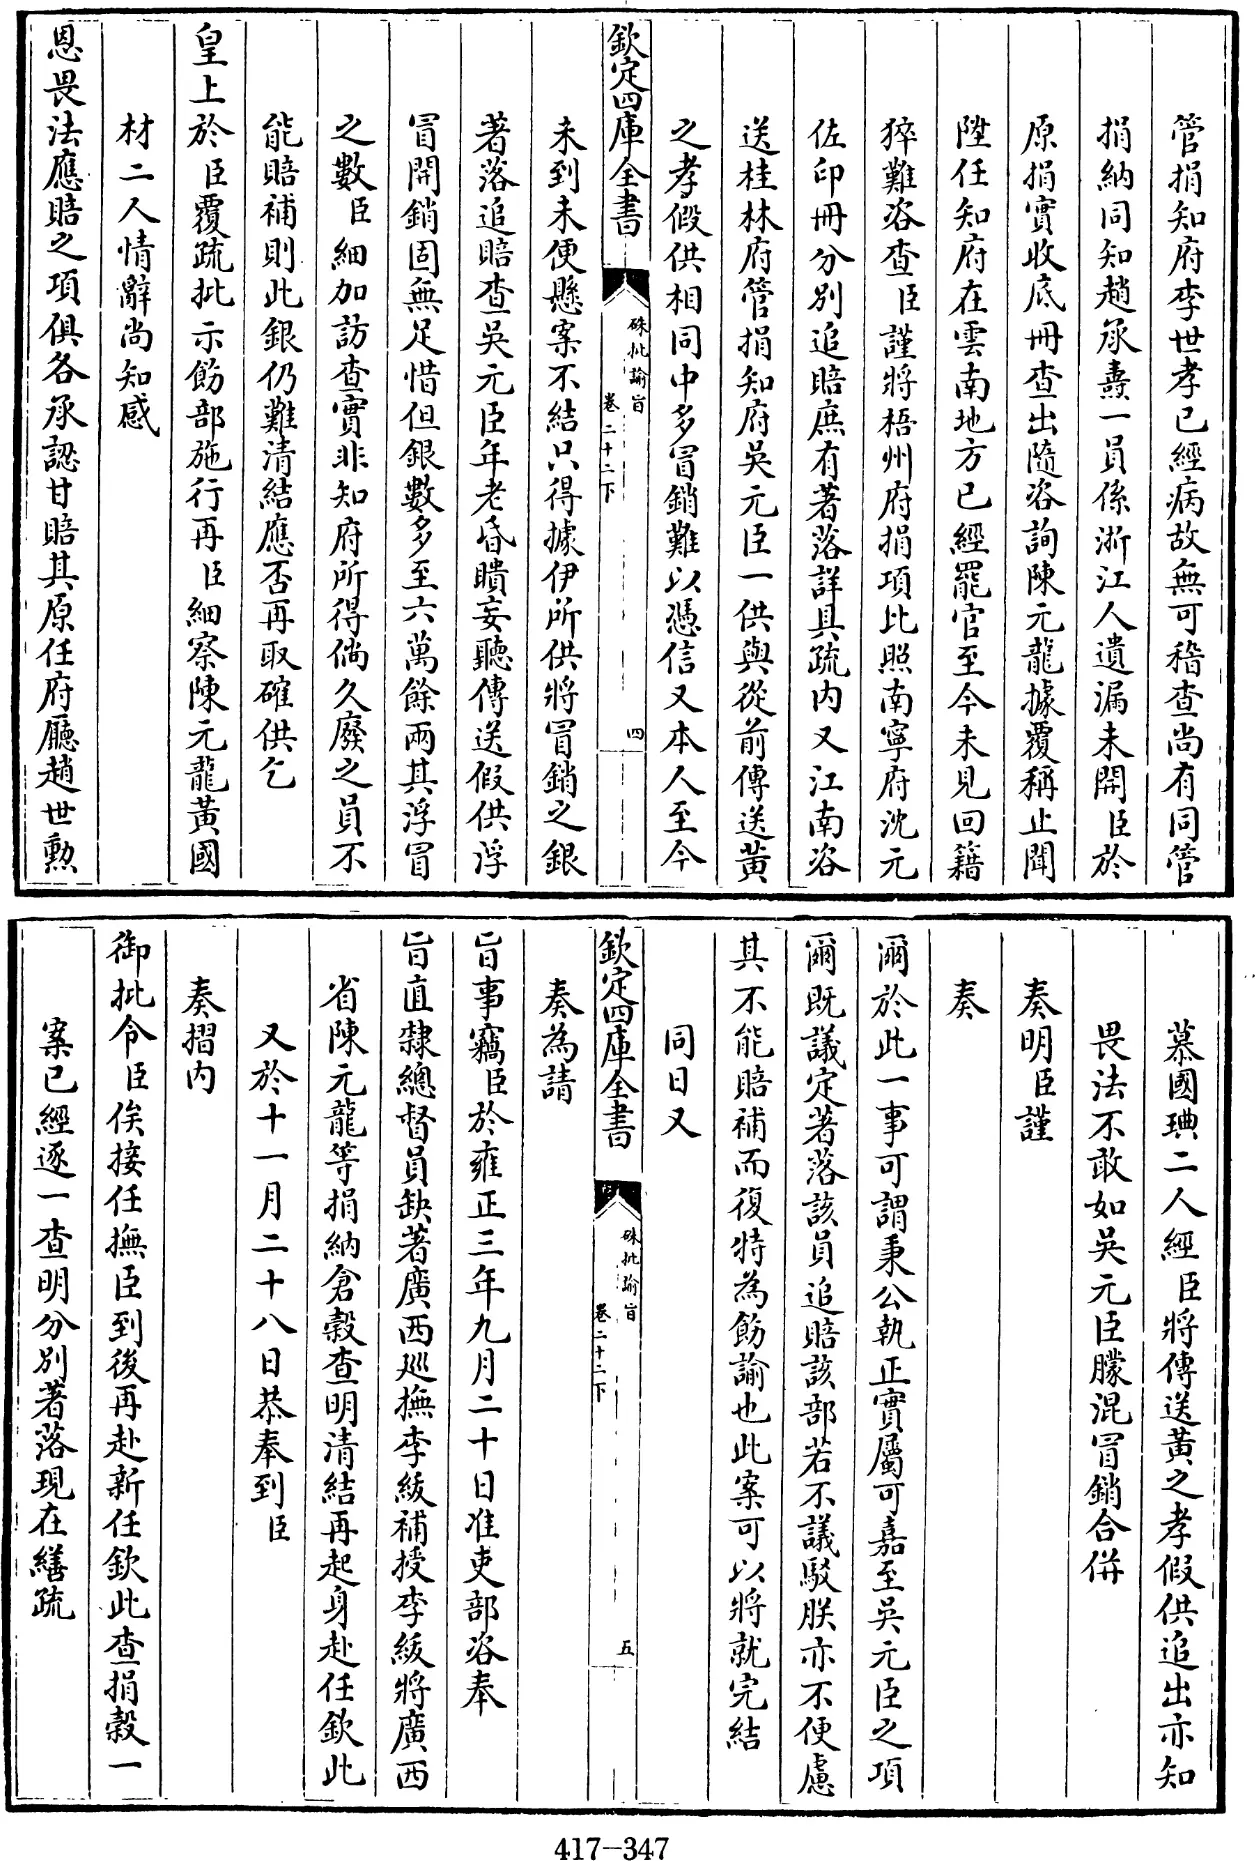 管捐知府李世孝已經病故無可稽查尚有同管
捐納同知趙承燾一員係浙江人遺漏未開臣於
原捐實收底冊查出隨咨詢陳元龍據覆稱止聞
陞任知府在雲南地方已經罷官至今未見回籍
猝難咨查臣謹將梧州府捐項比照南寧府沈元
佐印冊分別追賠庶有著落詳具疏內又江南咨
送桂林府管捐知府吳元臣一供與從前傳送黃
之孝假供相同中多冒銷難以憑信又本人至今
欽定四庫全書
硃批諭旨
卷二十二下
四
未到未便懸案不結只得據伊所供將冒銷之銀
著落追賠查吳元臣年老昏瞶妄聽傳送假供浮
冒開銷固無足惜但銀數多至六萬餘兩其浮冒
之數臣細加訪查實非知府所得倘久廢之員不
能賠補則此銀仍難清結應否再取確供乞
皇上於臣覆疏批示飭部施行再臣細察陳元龍黃國
材二人情辭尚知感
恩畏法應賠之項俱各承認甘賠其原任府廳趙世勳
慕國琠二人經臣將傳送黃之孝假供追出亦知
畏法不敢如吳元臣朦混冒銷合併
奏明臣謹
奏
爾於此一事可謂秉公執正實屬可嘉至吳元臣之項
爾既議定著落該員追賠該部若不議駁朕亦不便慮
其不能賠補而復特為飭諭也此案可以將就完結
同日又
欽定四庫全書
硃批諭旨
卷二十二下
五
奏為請
旨事竊臣於雍正三年九月二十日准吏部咨奉
旨直隸總督員缺著廣西巡撫李紱補授李紱將廣西
省陳元龍等捐納倉穀查明清結再起身赴任欽此
又於十一月二十八日恭奉到臣
奏摺內
御批令臣俟接任撫臣到後再赴新任欽此查捐穀一
案已經逐一查明分別著落現在繕疏
417-347